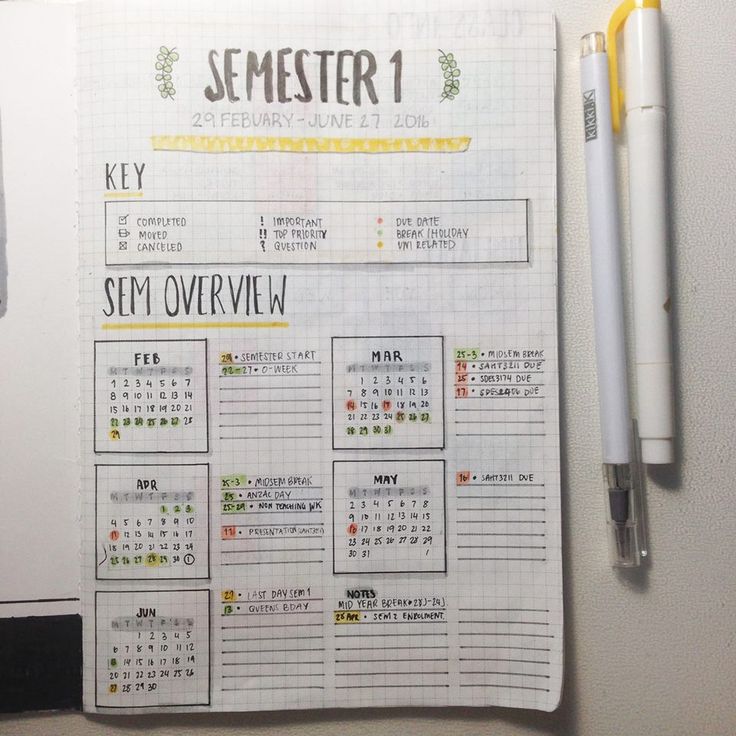 SEMESTER 1
29 FEBUARY - JUNE 27 2016
KEY
COMPLETED ! IMPORTANT DUE DATE
MOVED !! TOP PRIORITY BREAK/HOLIDAY
CANCELED ? QUESTION UNI RELATED
SEM OVERVIEW
FEB
M T W T F S S
1 2 3 4 5 6 7
8 9 10 11 12 13 14
15 16 17 18 19 20 21
22 23 24 25 26 27 28
29
29 • SEMESTER START
22-27 • O-WEEK
MAR
M T W T F S S
1 2 3 4 5 6
7 8 9 10 11 12 13
14 15 16 17 18 19 20
21 22 23 24 25 26 27
28 29 30 31
25-3 • MIDSEM BREAK
14 • SAHT3211 DUE
25 • SDES3174 DUE
17 • SDES2406 DUE
APR
M T W T F S S
1 2 3
4 5 6 7 8 9 10
11 12 13 14 15 16 17
18 19 20 21 22 23 24
25 26 27 28 29 30 1
25-3 • MIDSEM BREAK
25 • ANZAC DAY
25-29 • NON TEACHING WK
11 • PRESENTATION
MAY
M T W T F S S
2 3 4 5 6 7 8
9 10 11 12 13 14 15
16 17 18 19 20 21 22
23 24 25 26 27 28 29
30 31 1
16 • SAHT3211 DUE
JUN
M T W T F S S
1 2 3 4 5
6 7 8 9 10 11 12
13 14 15 16 17 18 19
20 21 22 23 24 25 26
27 28 29 30
27 • LAST DAY SEM 1
13 • QUEENS BDAY
NOTES
MID YEAR BREAK
28 APR • SEM 2 ENROLMENT
kikki.K